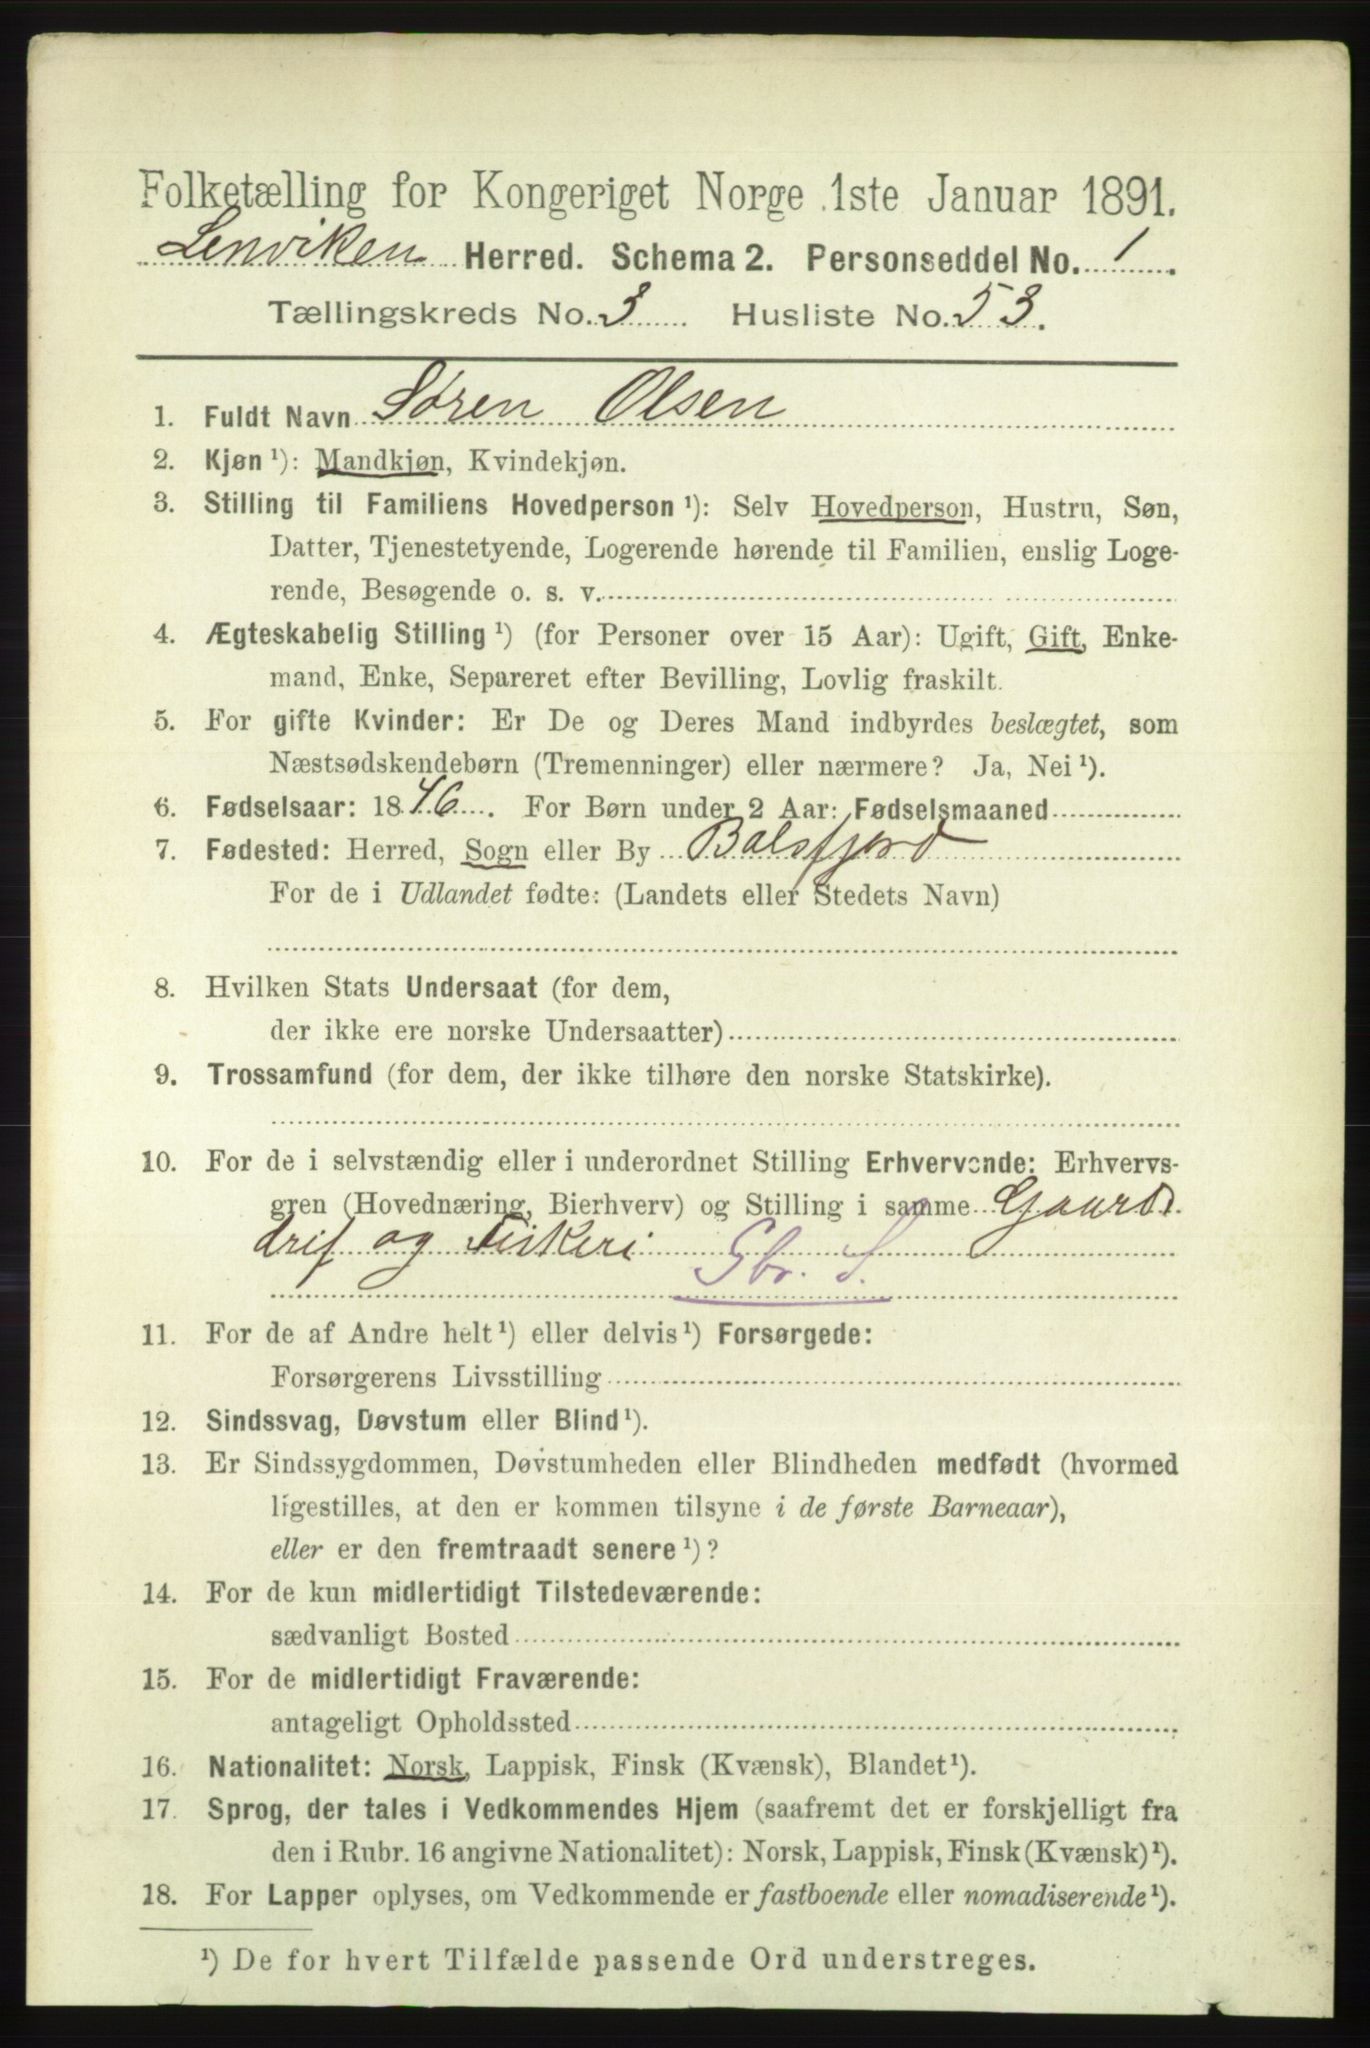 Folketælling for Kongeriget Norge 1ste Januar 1891.
Lenviken Herred. Schema 2. Personseddel No. 1.
Tællingskreds No. 3 Husliste No. 53.
1. Fuldt Navn Søren Olsen
2. Kjøn ¹): Mandkjøn, Kvindekjøn.
3. Stilling til Familiens Hovedperson ¹): Selv Hovedperson, Hustru, Søn,
Datter, Tjenestetyende, Logerende hørende til Familien, enslig Loge-
rende, Besøgende o. s. v.
4. Ægteskabelig Stilling ¹) (for Personer over 15 Aar): Ugift, Gift, Enke-
mand, Enke, Separeret efter Bevilling, Lovlig fraskilt.
5. For gifte Kvinder: Er De og Deres Mand indbyrdes beslægtet, som
Næstsødskendebørn (Tremenninger) eller nærmere? Ja, Nei ¹).
6. Fødselsaar: 1846. For Børn under 2 Aar: Fødselsmaaned
7. Fødested: Herred, Sogn eller By Balsfjord
For de i Udlandet fødte: (Landets eller Stedets Navn)
8. Hvilken Stats Undersaat (for dem,
der ikke ere norske Undersaatter)
9. Trossamfund (for dem, der ikke tilhøre den norske Statskirke).
10. For de i selvstændig eller i underordnet Stilling Erhvervende: Erhvervs-
gren (Hovednæring, Bierhverv) og Stilling i samme Gaards
drif og Fiskeri Gbr. S.
11. For de af Andre helt ¹) eller delvis ¹) Forsørgede:
Forsørgerens Livsstilling
12. Sindssvag, Døvstum eller Blind ¹).
13. Er Sindssygdommen, Døvstumheden eller Blindheden medfødt (hvormed
ligestilles, at den er kommen tilsyne i de første Barneaar),
eller er den fremtraadt senere ¹)?
14. For de kun midlertidigt Tilstedeværende:
sædvanligt Bosted
15. For de midlertidigt Fraværende:
antageligt Opholdssted
16. Nationalitet: Norsk, Lappisk, Finsk (Kvænsk), Blandet ¹).
17. Sprog, der tales i Vedkommendes Hjem (saafremt det er forskjelligt fra
den i Rubr. 16 angivne Nationalitet): Norsk, Lappisk, Finsk (Kvænsk) ¹).
18. For Lapper oplyses, om Vedkommende er fastboende eller nomadiserende ¹).
¹) De for hvert Tilfælde passende Ord understreges.